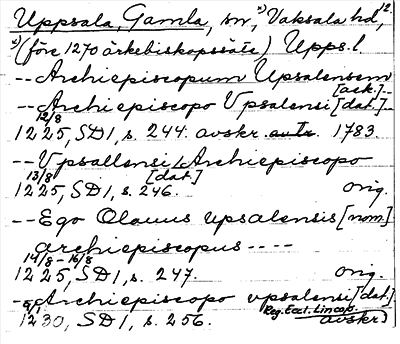 Uppsala, Gamla, sn, 2) Vaksala hd, 12.
2) (före 1270 ärkebiskopssäte) Upps. l.
-- Archiepiscopum Upsalensem
[ack.] --
-- Archiepiscopo Vpsalensi [dat.]
12/8
1225, SD 1, s. 244. avskr. 1783.
-- Vpsallensi Archiepiscopo
13/8 [dat.]
1225, SD 1, s. 246. orig.
-- Ego Olauus upsalensis [nom]
archiepiscopus ----
14/8 - 16/8
1225, SD 1, s. 247. orig.
- Archiepiscopo vpsalensi [dat.]
Reg. Eccl. Lincop.
1230, SD 1, s. 256. avskr.